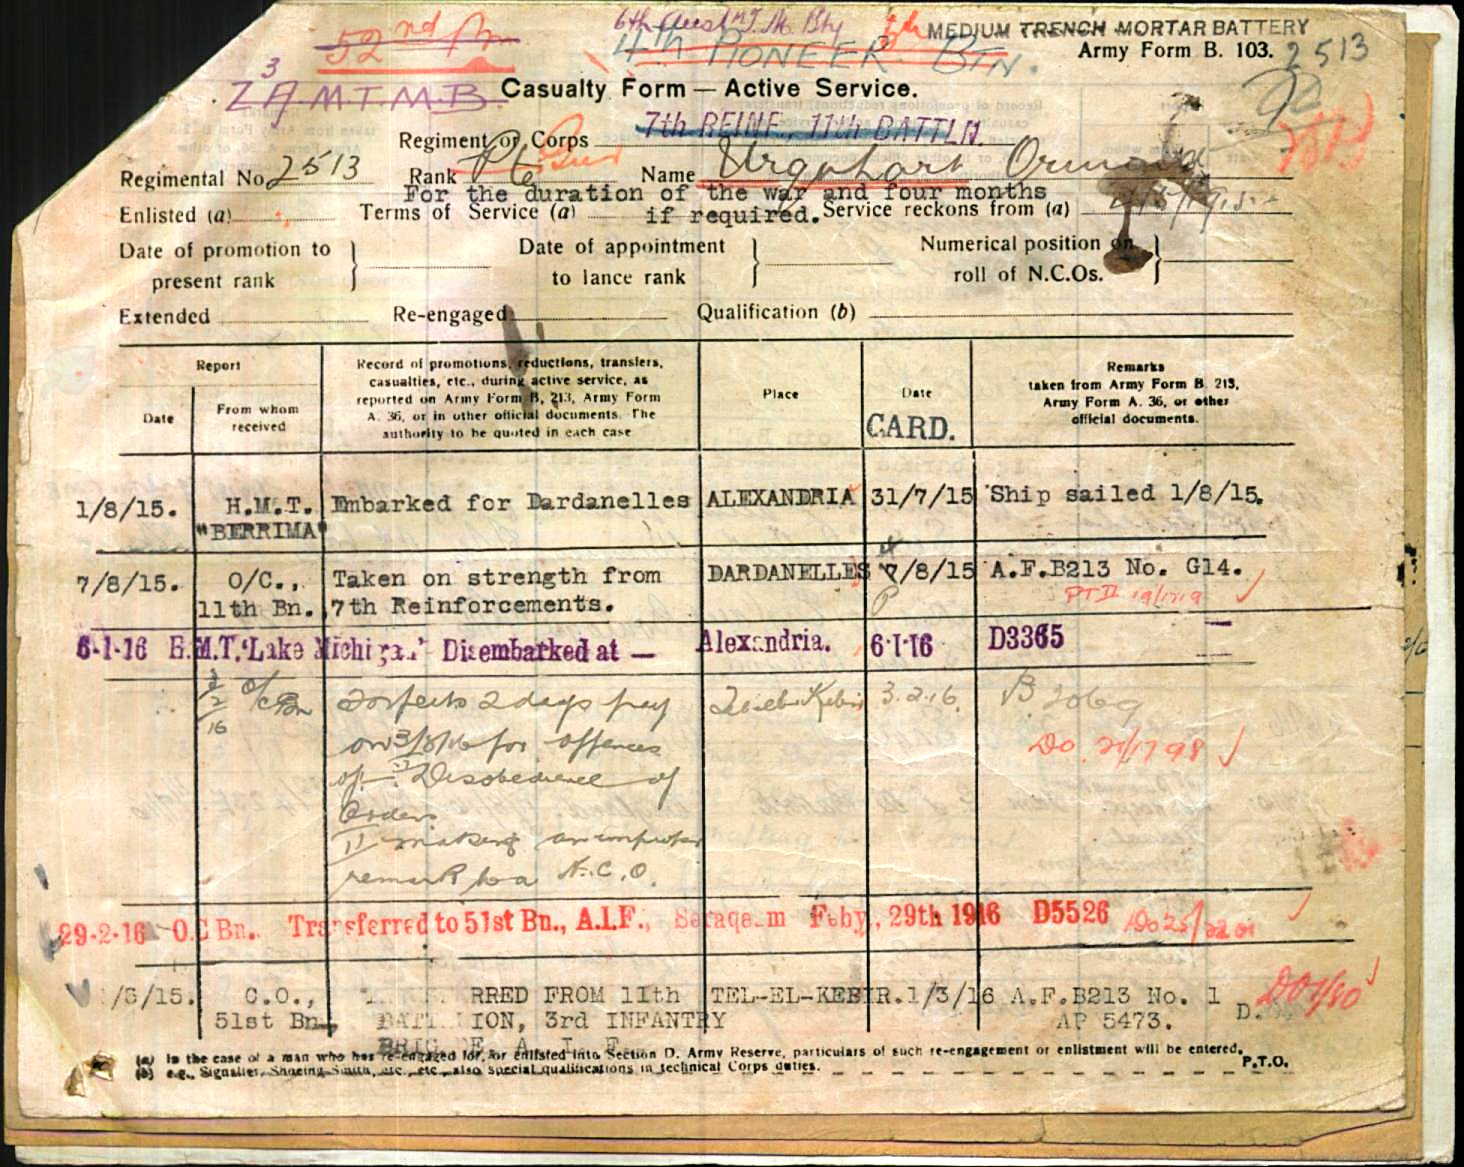 52nd Bn
6th Aust M.T.M. Bty
MEDIUM TRENCH MORTAR BATTERY
4th PIONEER BTN.
Army Form B. 103.
2513
3
Z A.M.T.M.B.
Casualty Form — Active Service.
7th REINF. 11th BATTLN.
Regiment or Corps
Regimental No. 2513 Rank Pte Name Urquhart Ormond
For the duration of the war and four months
Enlisted (a) Terms of Service (a) if required. Service reckons from (a)
Date of promotion to present rank
Date of appointment to lance rank
Numerical position on roll of N.C.Os.
Extended Re-engaged Qualification (b)
Report
Date
From whom received
Record of promotions, reductions, transfers,
casualties, etc., during active service, as
reported on Army Form B, 213, Army Form
A. 36, or in other official documents. The
authority to be quoted in each case
Place
Date
CARD.
Remarks
taken from Army Form B. 213,
Army Form A. 36, or other
official documents.
1/8/15. H.M.T. Embarked for Dardanelles ALEXANDRIA 31/7/15 Ship sailed 1/8/15.
"BERRIMA"
7/8/15. O/C., Taken on strength from DARDANELLES 7/8/15 A.F.B213 No. G14.
11th Bn. 7th Reinforcements.
6-1-16 H.M.T. 'Lake Michigan' Disembarked at — Alexandria. 6-1-16 D3365
3/2/16 O/C Bn Forfeits 2 days pay Tel el Kebir 3.2.16. B 3069
on 3/2/16 for offences
of I Disobedience of
Orders
II making an improper
remark to a N.C.O.
29-2-16 O.C Bn. Transferred to 51st Bn., A.I.F., Serapeum Feby., 29th 1916 D5526
/3/15. C.O., TRANSFERRED FROM 11th TEL-EL-KEBIR. 1/3/16 A.F.B213 No. 1
51st Bn., BATTALION, 3rd INFANTRY AP 5473.
BRIGADE, A. I. F.
(a) In the case of a man who has re-engaged for, or enlisted into Section D. Army Reserve, particulars of such re-engagement or enlistment will be entered.
(b) e.g., Signaller, Shoeing Smith, etc., etc., also special qualifications in technical Corps duties.
P.T.O.